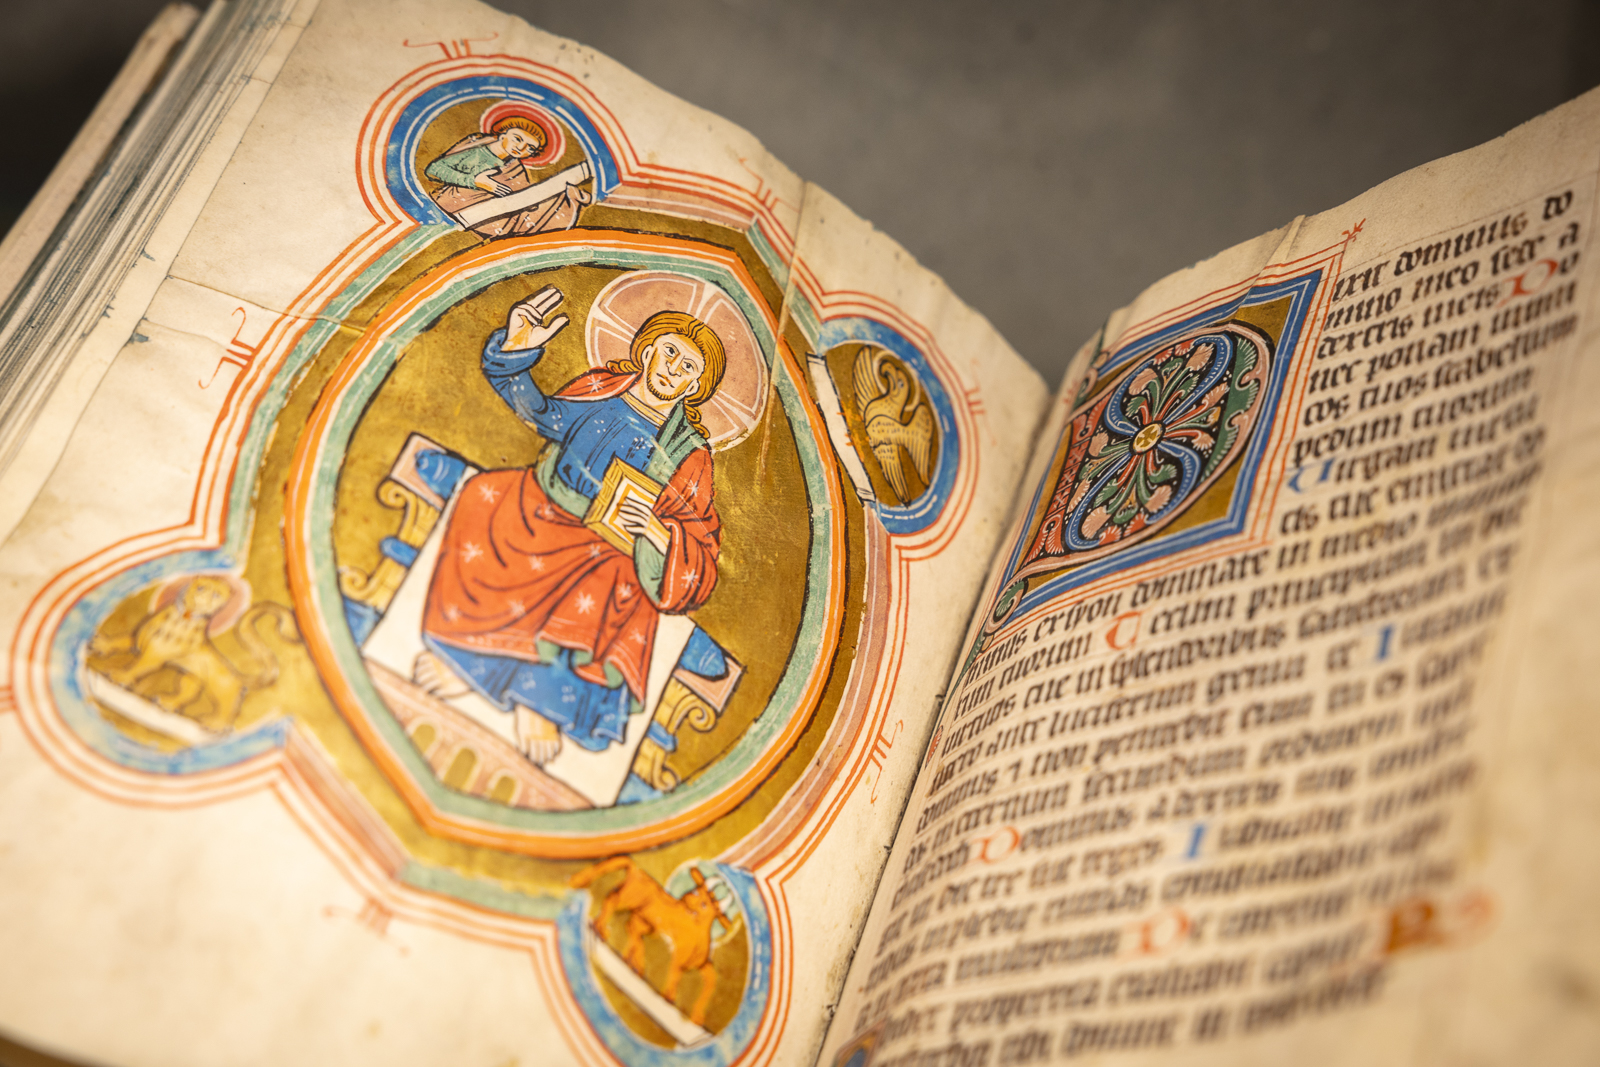 Dixit dominus do
mino meo sede a
dextris meis Do
nec ponam inimi
cos tuos scabellum
pedum tuorum
Virgam virtu
tis tue emittet do
minus ex syon dominare in medio inimico
rum tuorum Tecum principium in die
virtutis tue in splendoribus sanctorum ex
utero ante luciferum genui te Iuravit
dominus ⁊ non penitebit eum tu es sacer
dos in eternum secundum ordinem mel
chisedech Dominus a dextris tuis confre
git in die ire sue reges Iudicabit in nati
onibus implebit ruinas conquassabit capi
ta in terra multorum De torrente in via
bibet propterea exaltabit caput